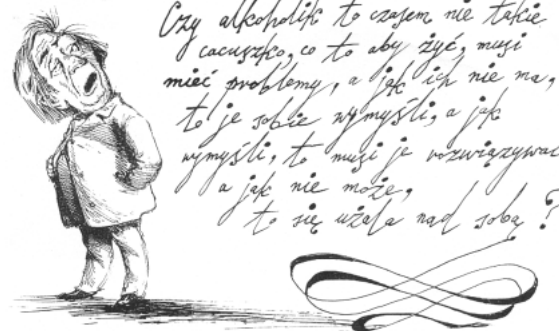 Czy alkoholik to czasem nie takie
cacuszko, co to aby żyć, musi
mieć problemy, a jak ich nie ma,
to je sobie wymyśli, a jak
wymyśli, to musi je rozwiązywać
a jak nie może,
to się użala nad sobą?